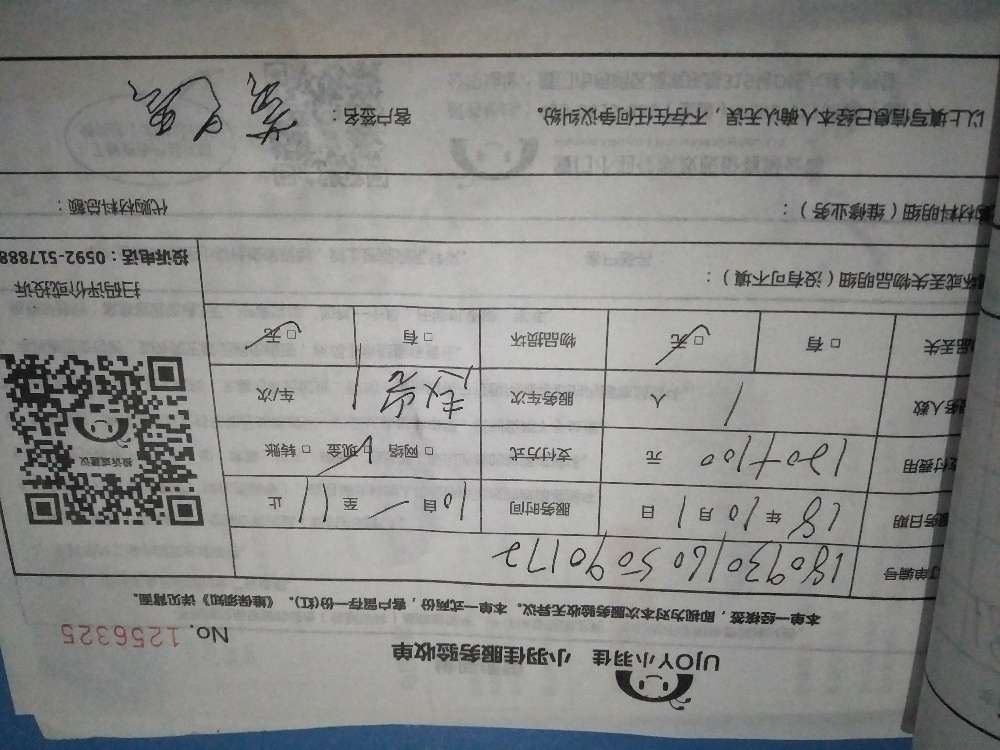 UJOY小羽佳 小羽佳服务验收单
No. 1256325
本单一经接签，即视为对本次服务验收无异议。本单一式两份，客户留存一份(红)。《维保须知》详见背面。
订单编号 180930160509017 2
服务日期 18 年 10 月 1 日 服务时间 □自 10 至 11 止
支付费用 120+100 元 支付方式 □网络 □现金 □转账
服务人数 1 人 服务车次 1 车/次
品丢失 □有 □无 物品损坏 □有 □无
坏或丢失物品明细（没有可不填）：
投诉或建议
扫码评价或投诉
投诉电话：0592-517888
购材料明细（维修业务）： 代购材料总额：
以上填写信息已经本人确认无误，不存在任何争议纠纷。 客户签名：